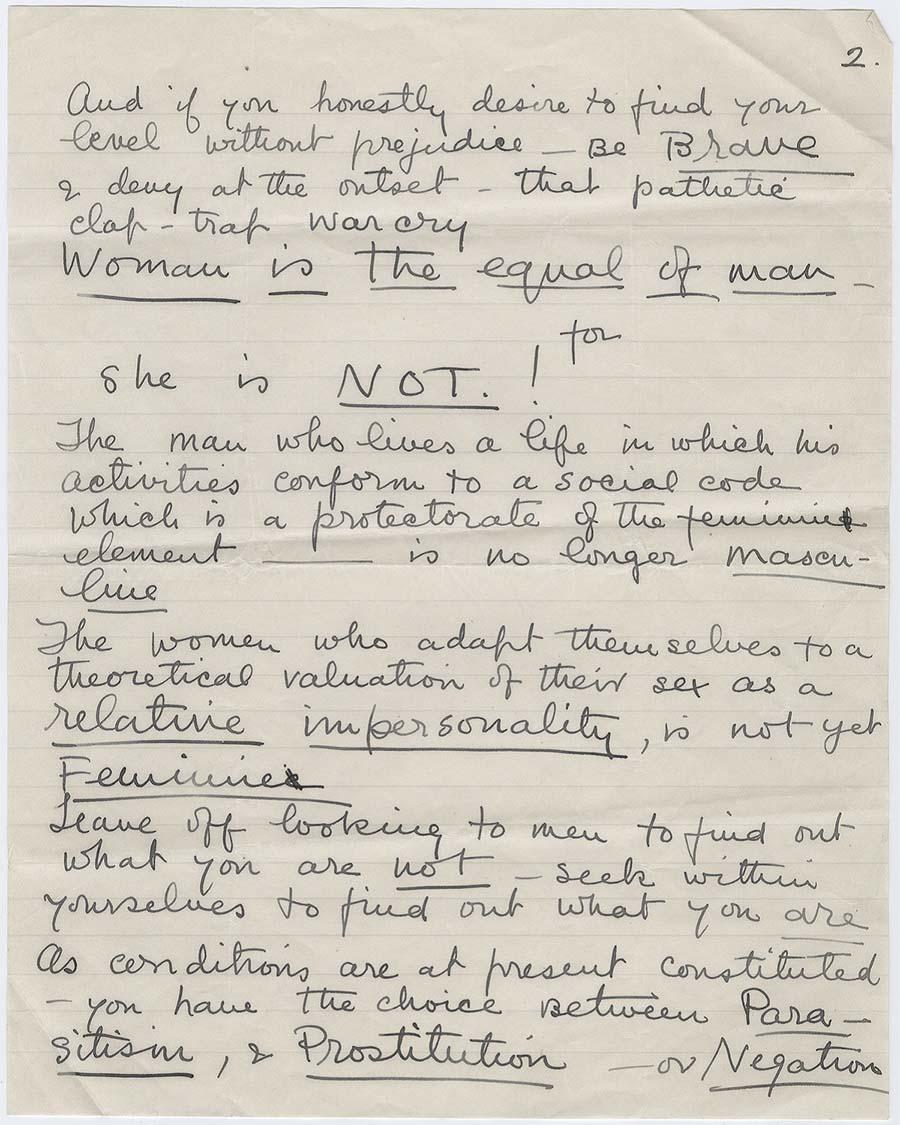 2.
And if you honestly desire to find your
level without prejudice — Be Brave
& deny at the outset - that pathetic
clap-trap war cry
Woman is the equal of man -
for
She is NOT. !
The man who lives a life in which his
activities conform to a social code
which is a protectorate of the feminine
element —— is no longer mascu-
line
The women who adapt themselves to a
theoretical valuation of their sex as a
relative impersonality, is not yet
Feminine
Leave off looking to men to find out
what you are not - seek within
yourselves to find out what you are
As conditions are at present constituted
- you have the choice between Para-
sitism, & Prostitution — or Negation